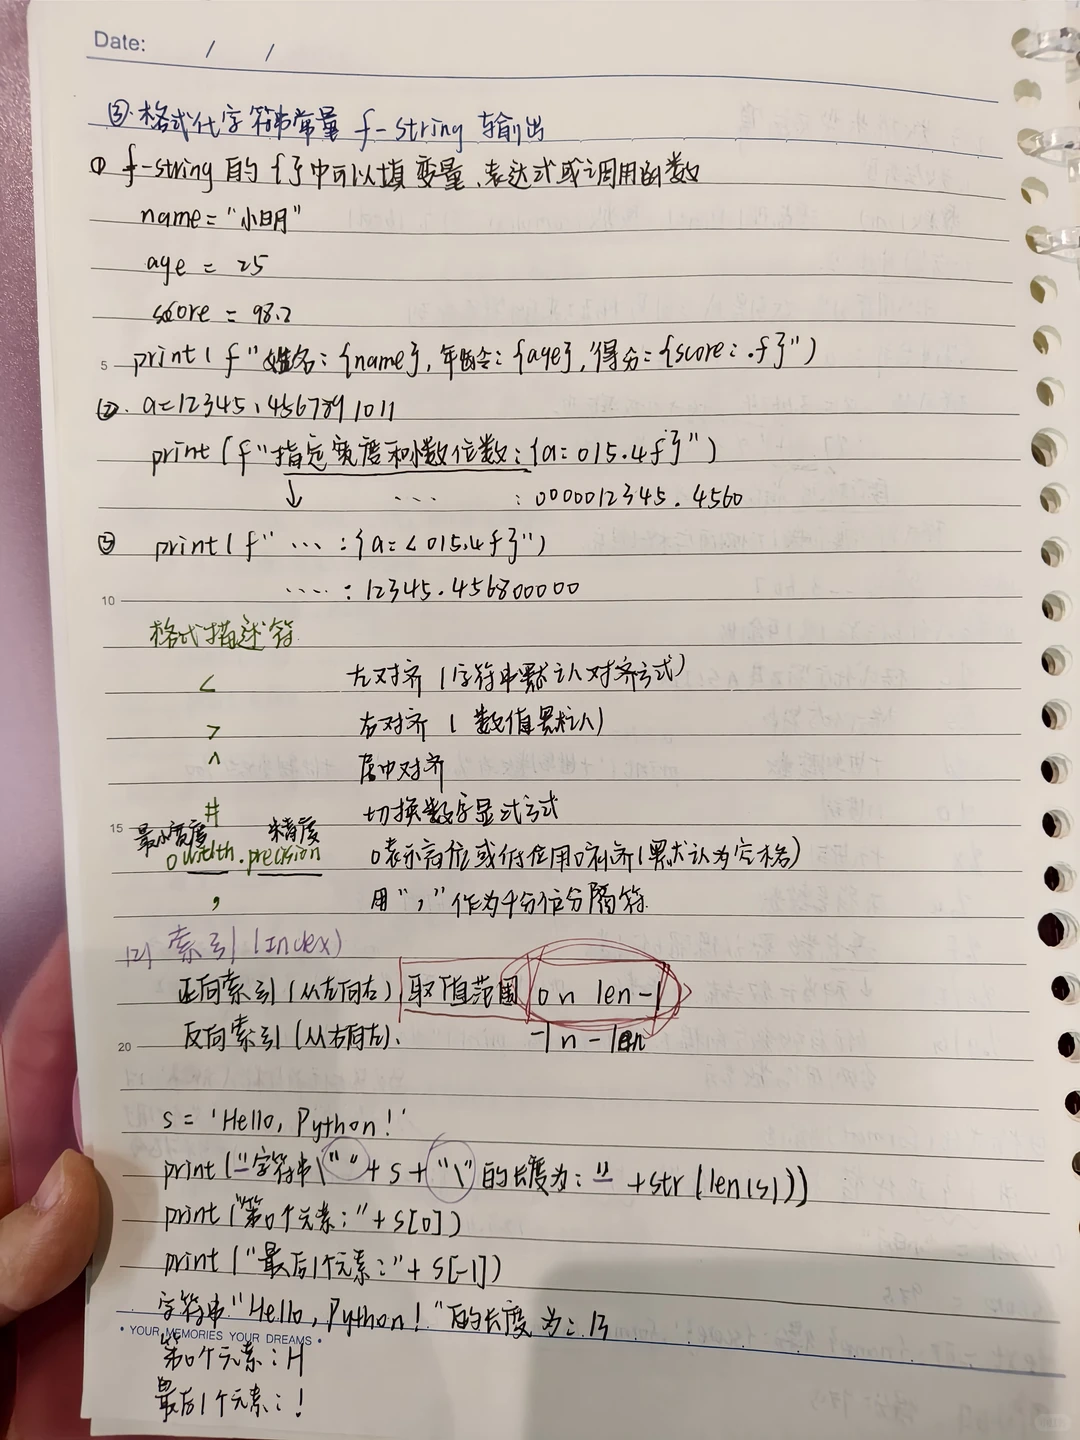 Date: / /
③.格式化字符串常量 f-string 输出
① f-string 的 { } 中可以填变量、表达式或调用函数
name = "小明"
age = 25
score = 98.2
5 print ( f"姓名: {name}, 年龄: {age}, 得分: {score: .f}" )
②. a=12345.4567891011
print (f"指定宽度和小数位数: {a: 015.4f}")
↓ ... : 0000012345.4560
③ print( f" ... : {a: < 015.4f}")
.... : 12345.456800000
10
格式描述符
< 左对齐 (字符串默认对齐方式)
> 右对齐 ( 数值默认)
^ 居中对齐
# 切换数字显式方式
15 最小宽度 精度
0 width . precision 0表示高位或低位用0补齐(默认为空格)
, 用","作为千分位分隔符.
(2) 索引 (Index)
正向索引 (从左向右) 取值范围 0 n len-1
反向索引 (从右向左). -1 n -len
20
s = 'Hello, Python!'
print ("字符串\" " + s + "\" 的长度为: " + str (len(s)))
print ("第0个元素:" + s[0])
print ("最后1个元素:" + s[-1])
字符串"Hello, Python! "的长度为: 13
• YOUR MEMORIES YOUR DREAMS •
第0个元素: H
最后1个元素: !